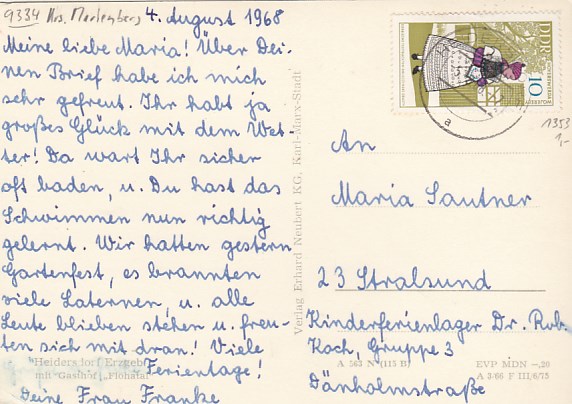 9334 Krs. Marienberg
4. August 1968
Meine liebe Maria! Über Dei-
nen Brief habe ich mich
sehr gefreut. Ihr habt ja
großes Glück mit dem Wet-
ter! Da wart Ihr sicher
oft baden, u. Du hast das
Schwimmen nun richtig
gelernt. Wir hatten gestern
Gartenfest, es brannten
viele Laternen, u. alle
Leute blieben stehen u. freu-
ten sich mit dran! Viele
Ferientage!
Deine Frau Franke
Heidersdorf Erzgeb.
mit "Gasthof Flöhatal"
Verlag Erhard Neubert KG, Karl-Marx-Stadt
DDR
10
HOYERSWERDA
a
1353
1,-
An
Maria Sautner
23 Stralsund
Kinderferienlager Dr. Rob.
Koch, Gruppe 3
Dänholmstraße
A 563 N (115 B)
EVP MDN –,20
A 3/66 F III/6/75